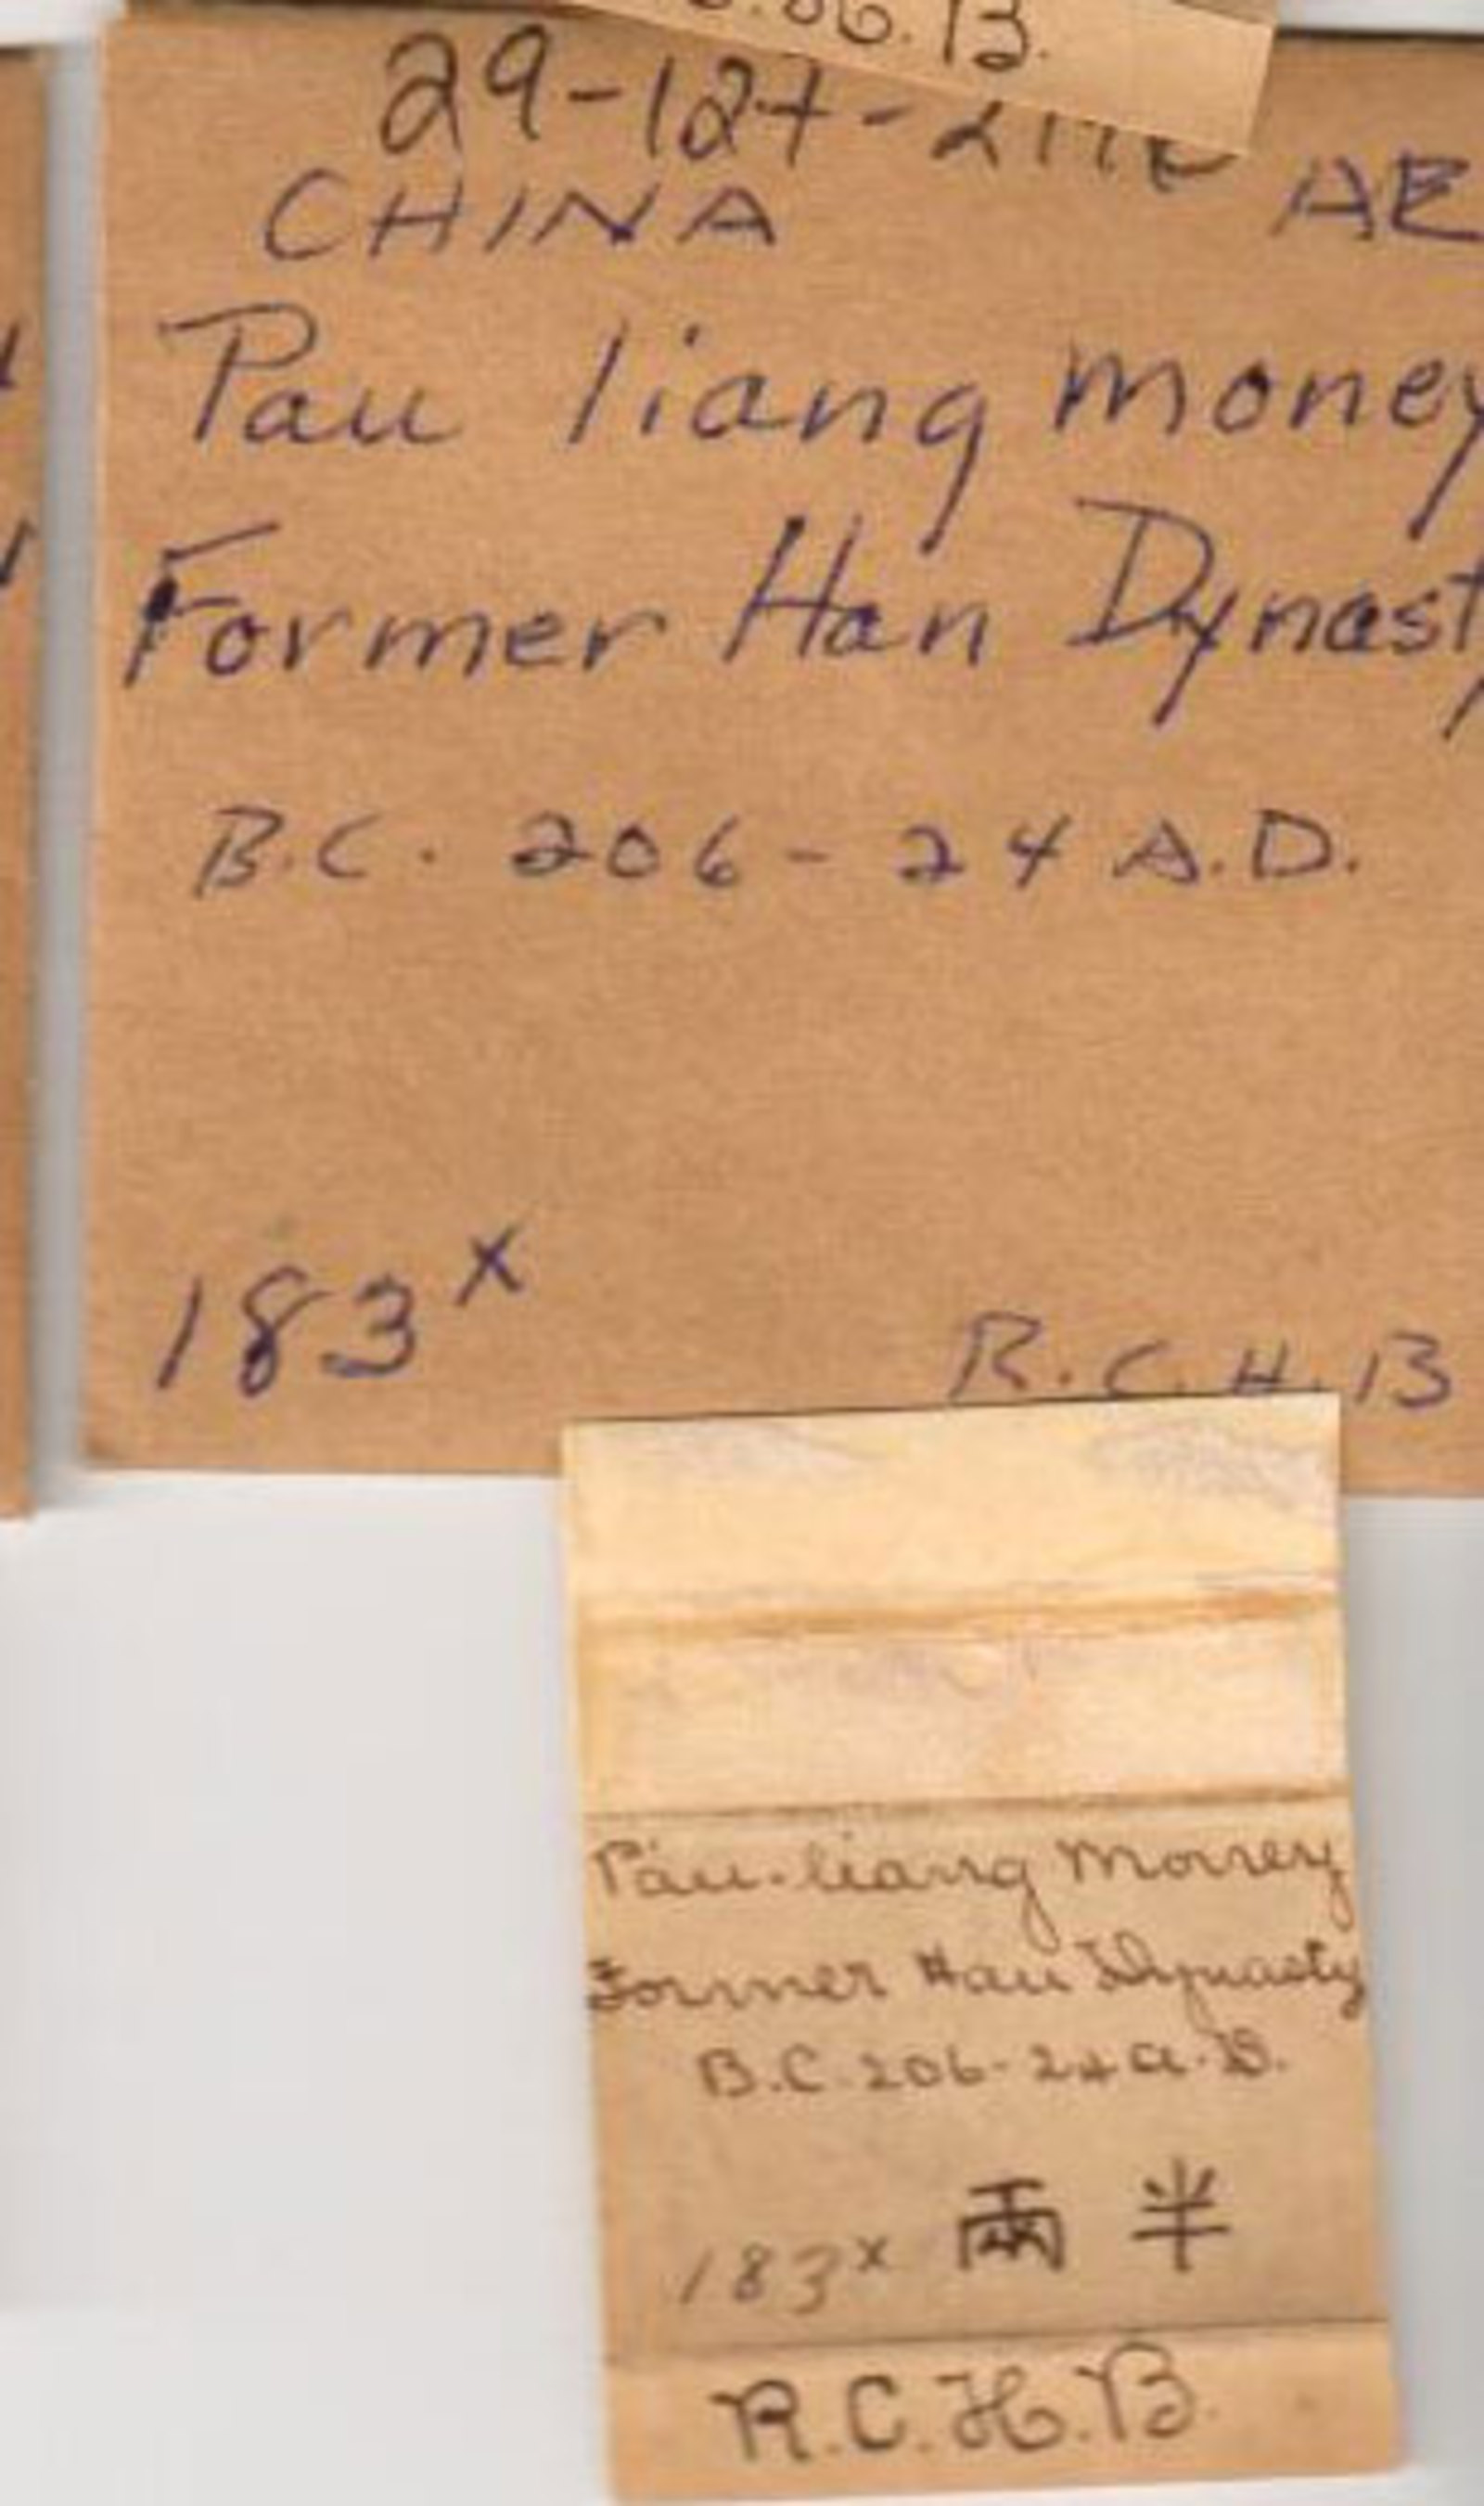 .B.
29-124-
CHINA AE
Pau liang money
Former Han Dynasty
B.C. 206 - 24 A.D.
183 x
R.C.H.B
Pau-liang Money
Former Han Dynasty
B.C. 206-24 A.D.
183 x 兩 半
R.C.H.B.